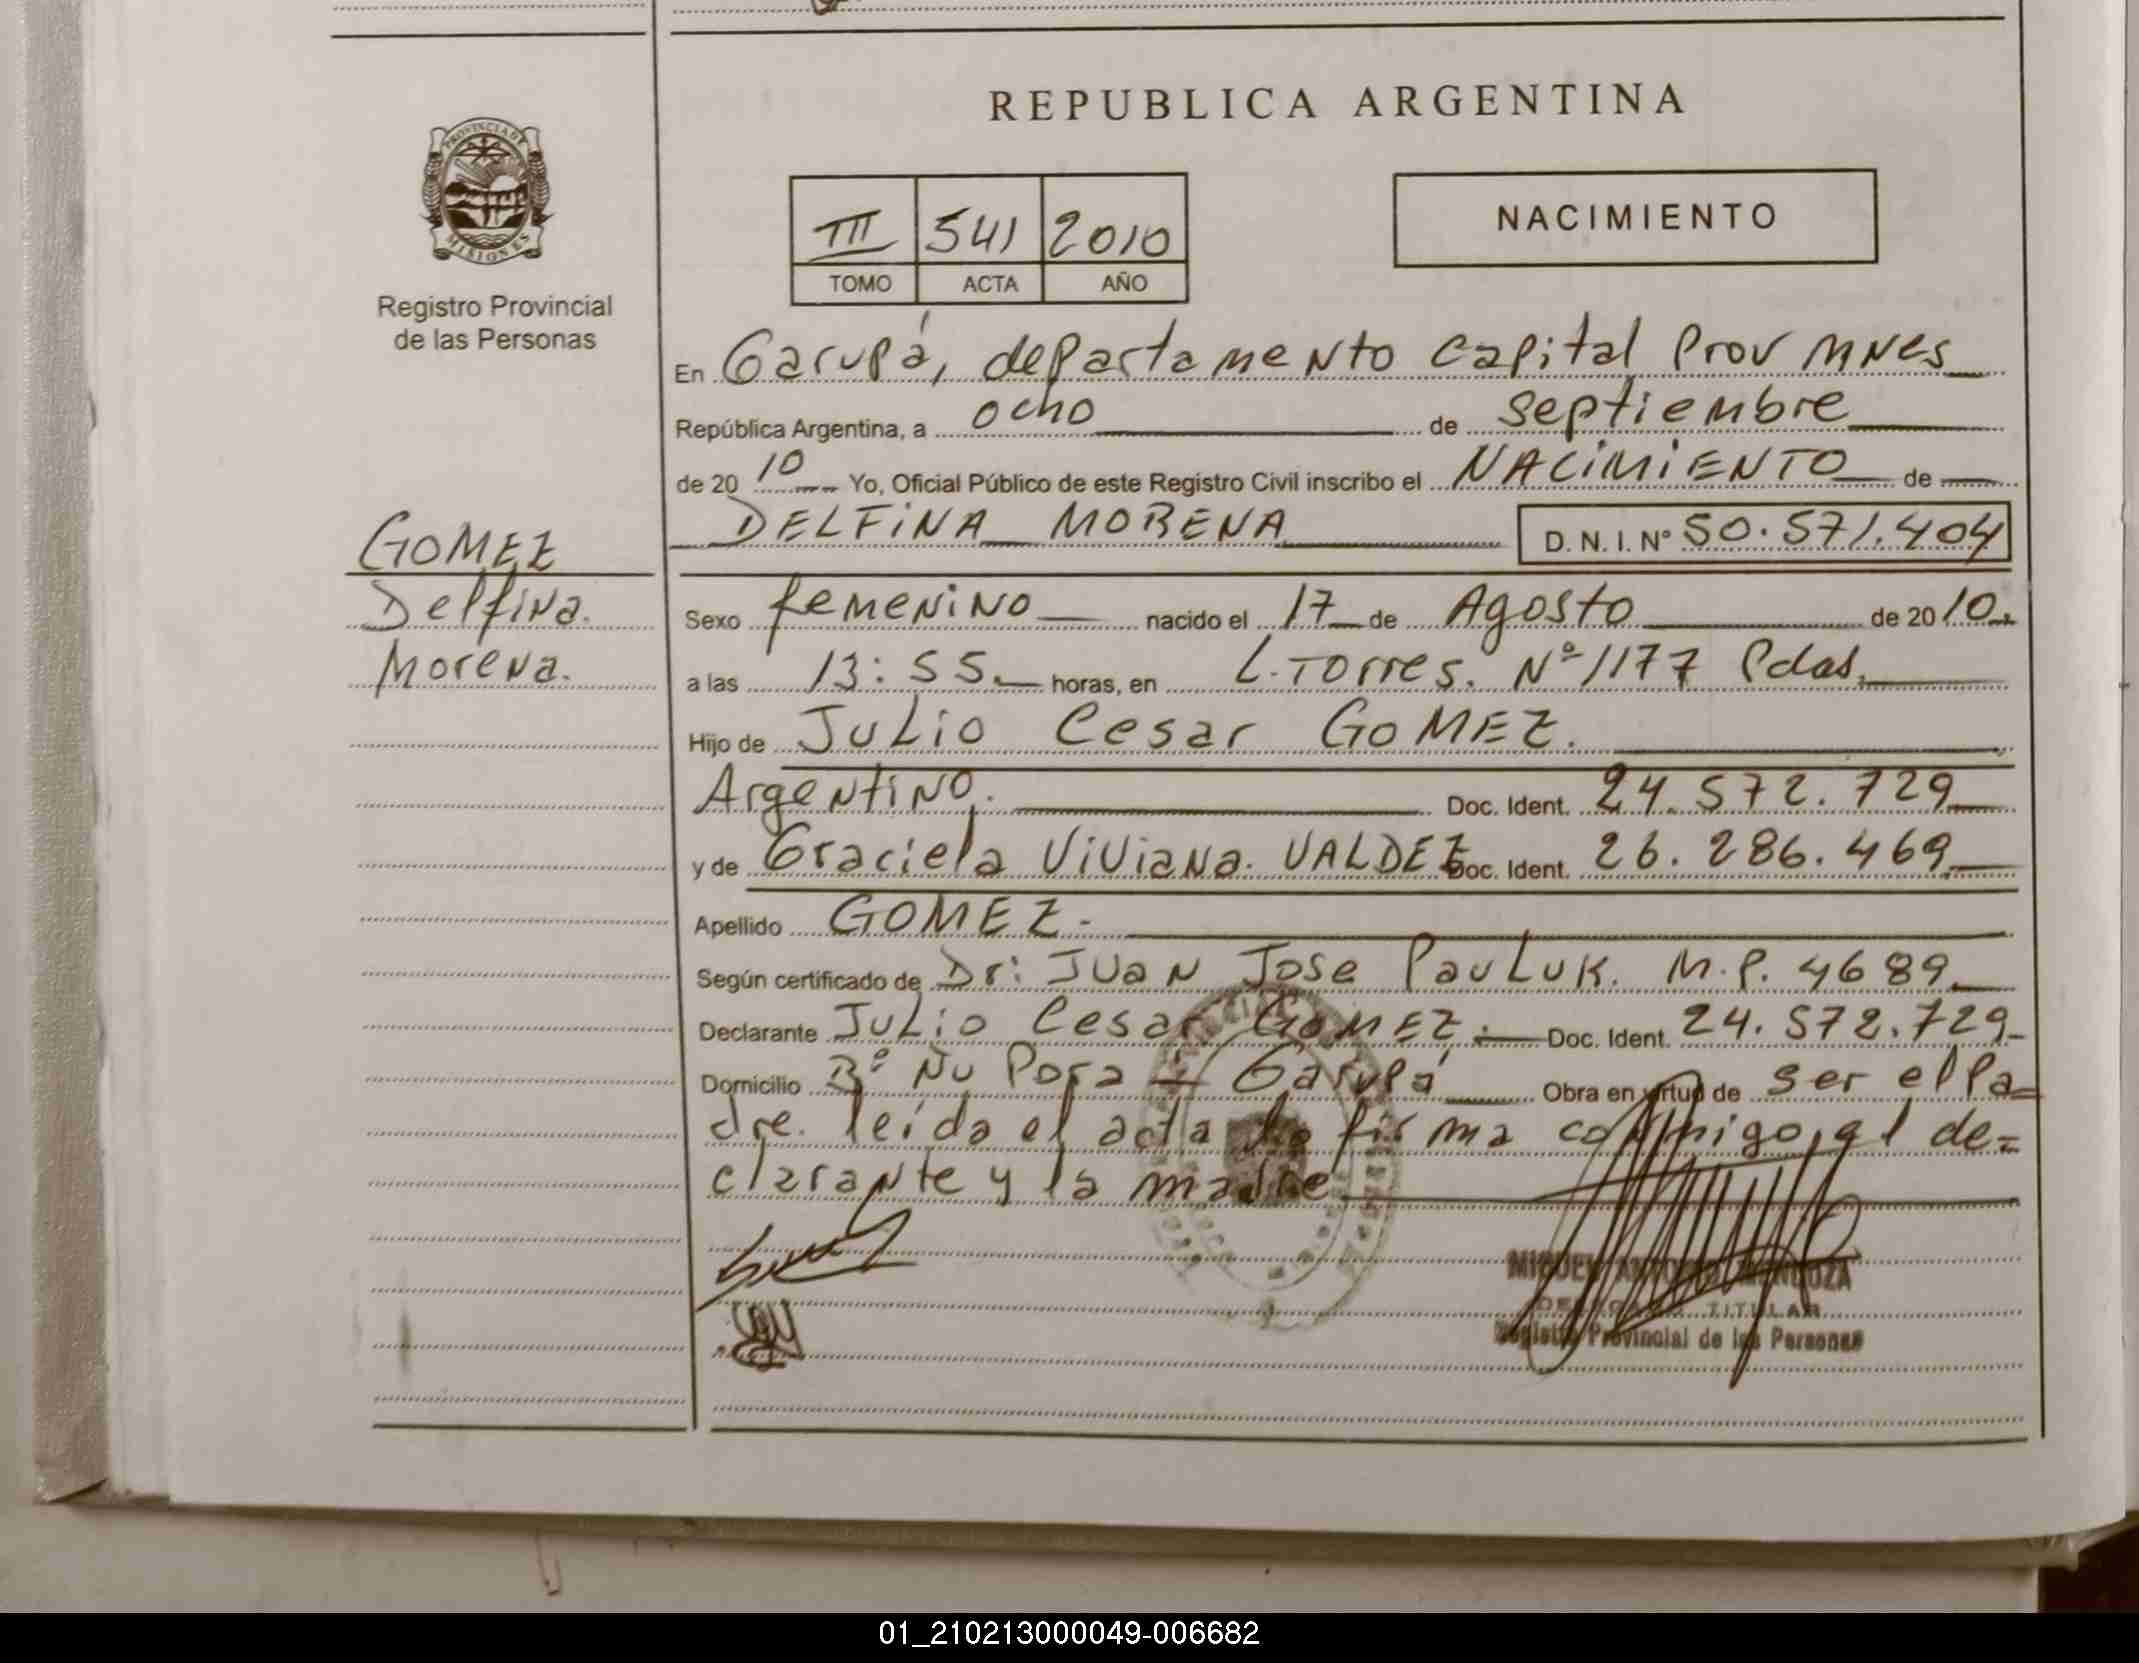 REPUBLICA ARGENTINA
PROVINCIA DE
MISIONES
Registro Provincial
de las Personas
III 541 2010
TOMO ACTA AÑO
NACIMIENTO
En Garupá, departamento Capital Prov Mnes
República Argentina, a ocho de septiembre
de 2010 Yo, Oficial Público de este Registro Civil inscribo el NACIMIENTO de
DELFINA MORENA D.N.I. Nº 50.571.404
GOMEZ
Delfina.
Morena.
Sexo femenino nacido el 17 de Agosto de 2010.
a las 13:55. horas, en L. Torres. Nº 1177 Pdas.
Hijo de Julio Cesar GOMEZ.
Argentino. Doc. Ident. 24.572.729
y de Graciela Viviana. VALDEZ Doc. Ident. 26.286.469
Apellido GOMEZ.
Según certificado de Dr: Juan Jose Pauluk. M.P. 4689
Declarante Julio Cesar GOMEZ. Doc. Ident. 24.572.729
Domicilio Bº Ñu Pora - Garupá Obra en virtud de ser el Pa=
dre. leída el acta la firma conmigo, el de=
clarante y la madre
MIGUEL ANTONIO MENDOZA
DELEGADO TITULAR
Registro Provincial de las Personas
01_210213000049-006682